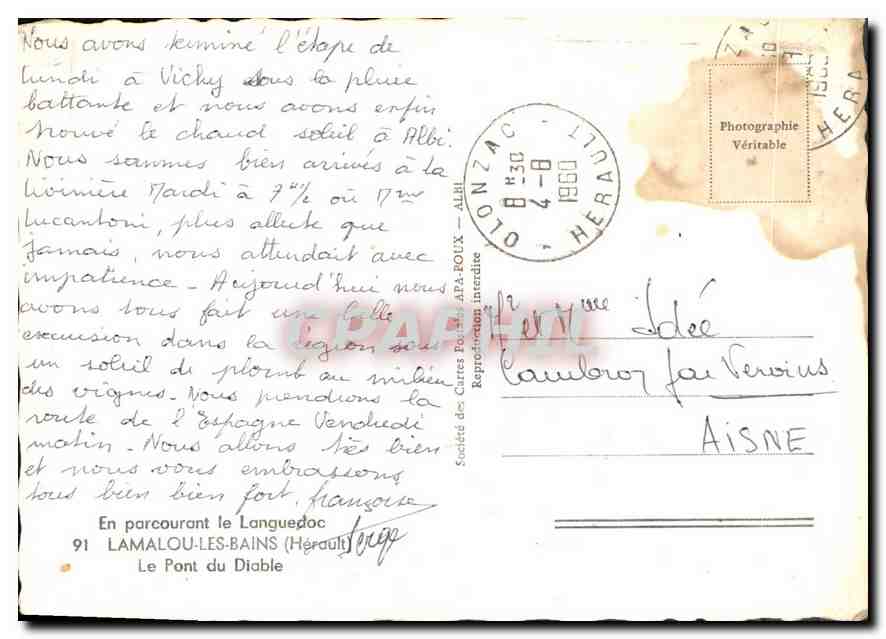 Nous avons terminé l'étape de
lundi à Vichy sous la pluie
battante et nous avons enfin
trouvé le chaud soleil à Albi.
Nous sommes bien arrivés à la
Livinière Mardi à 7h 1/2 où Mme
Lucantoni, plus alerte que
jamais, nous attendait avec
impatience - Aujourd'hui nous
avons tous fait une belle
excursion dans la région sous
un soleil de plomb au milieu
des vignes - Nous prendrons la
route de l'Espagne Vendredi
matin - Nous allons très bien
et nous vous embrassons
tous bien bien fort. françoise
Serge
En parcourant le Languedoc
91 LAMALOU-LES-BAINS (Hérault)
Le Pont du Diable
Société des Cartes Postales APA-POUX — ALBI
Reproduction interdite
OLONZAC - HÉRAULT
8H30
4-8
1960
Photographie
Véritable
HÉRA
1960
CPAPHIL
Mr et Mme Idée
par Vervins
AISNE